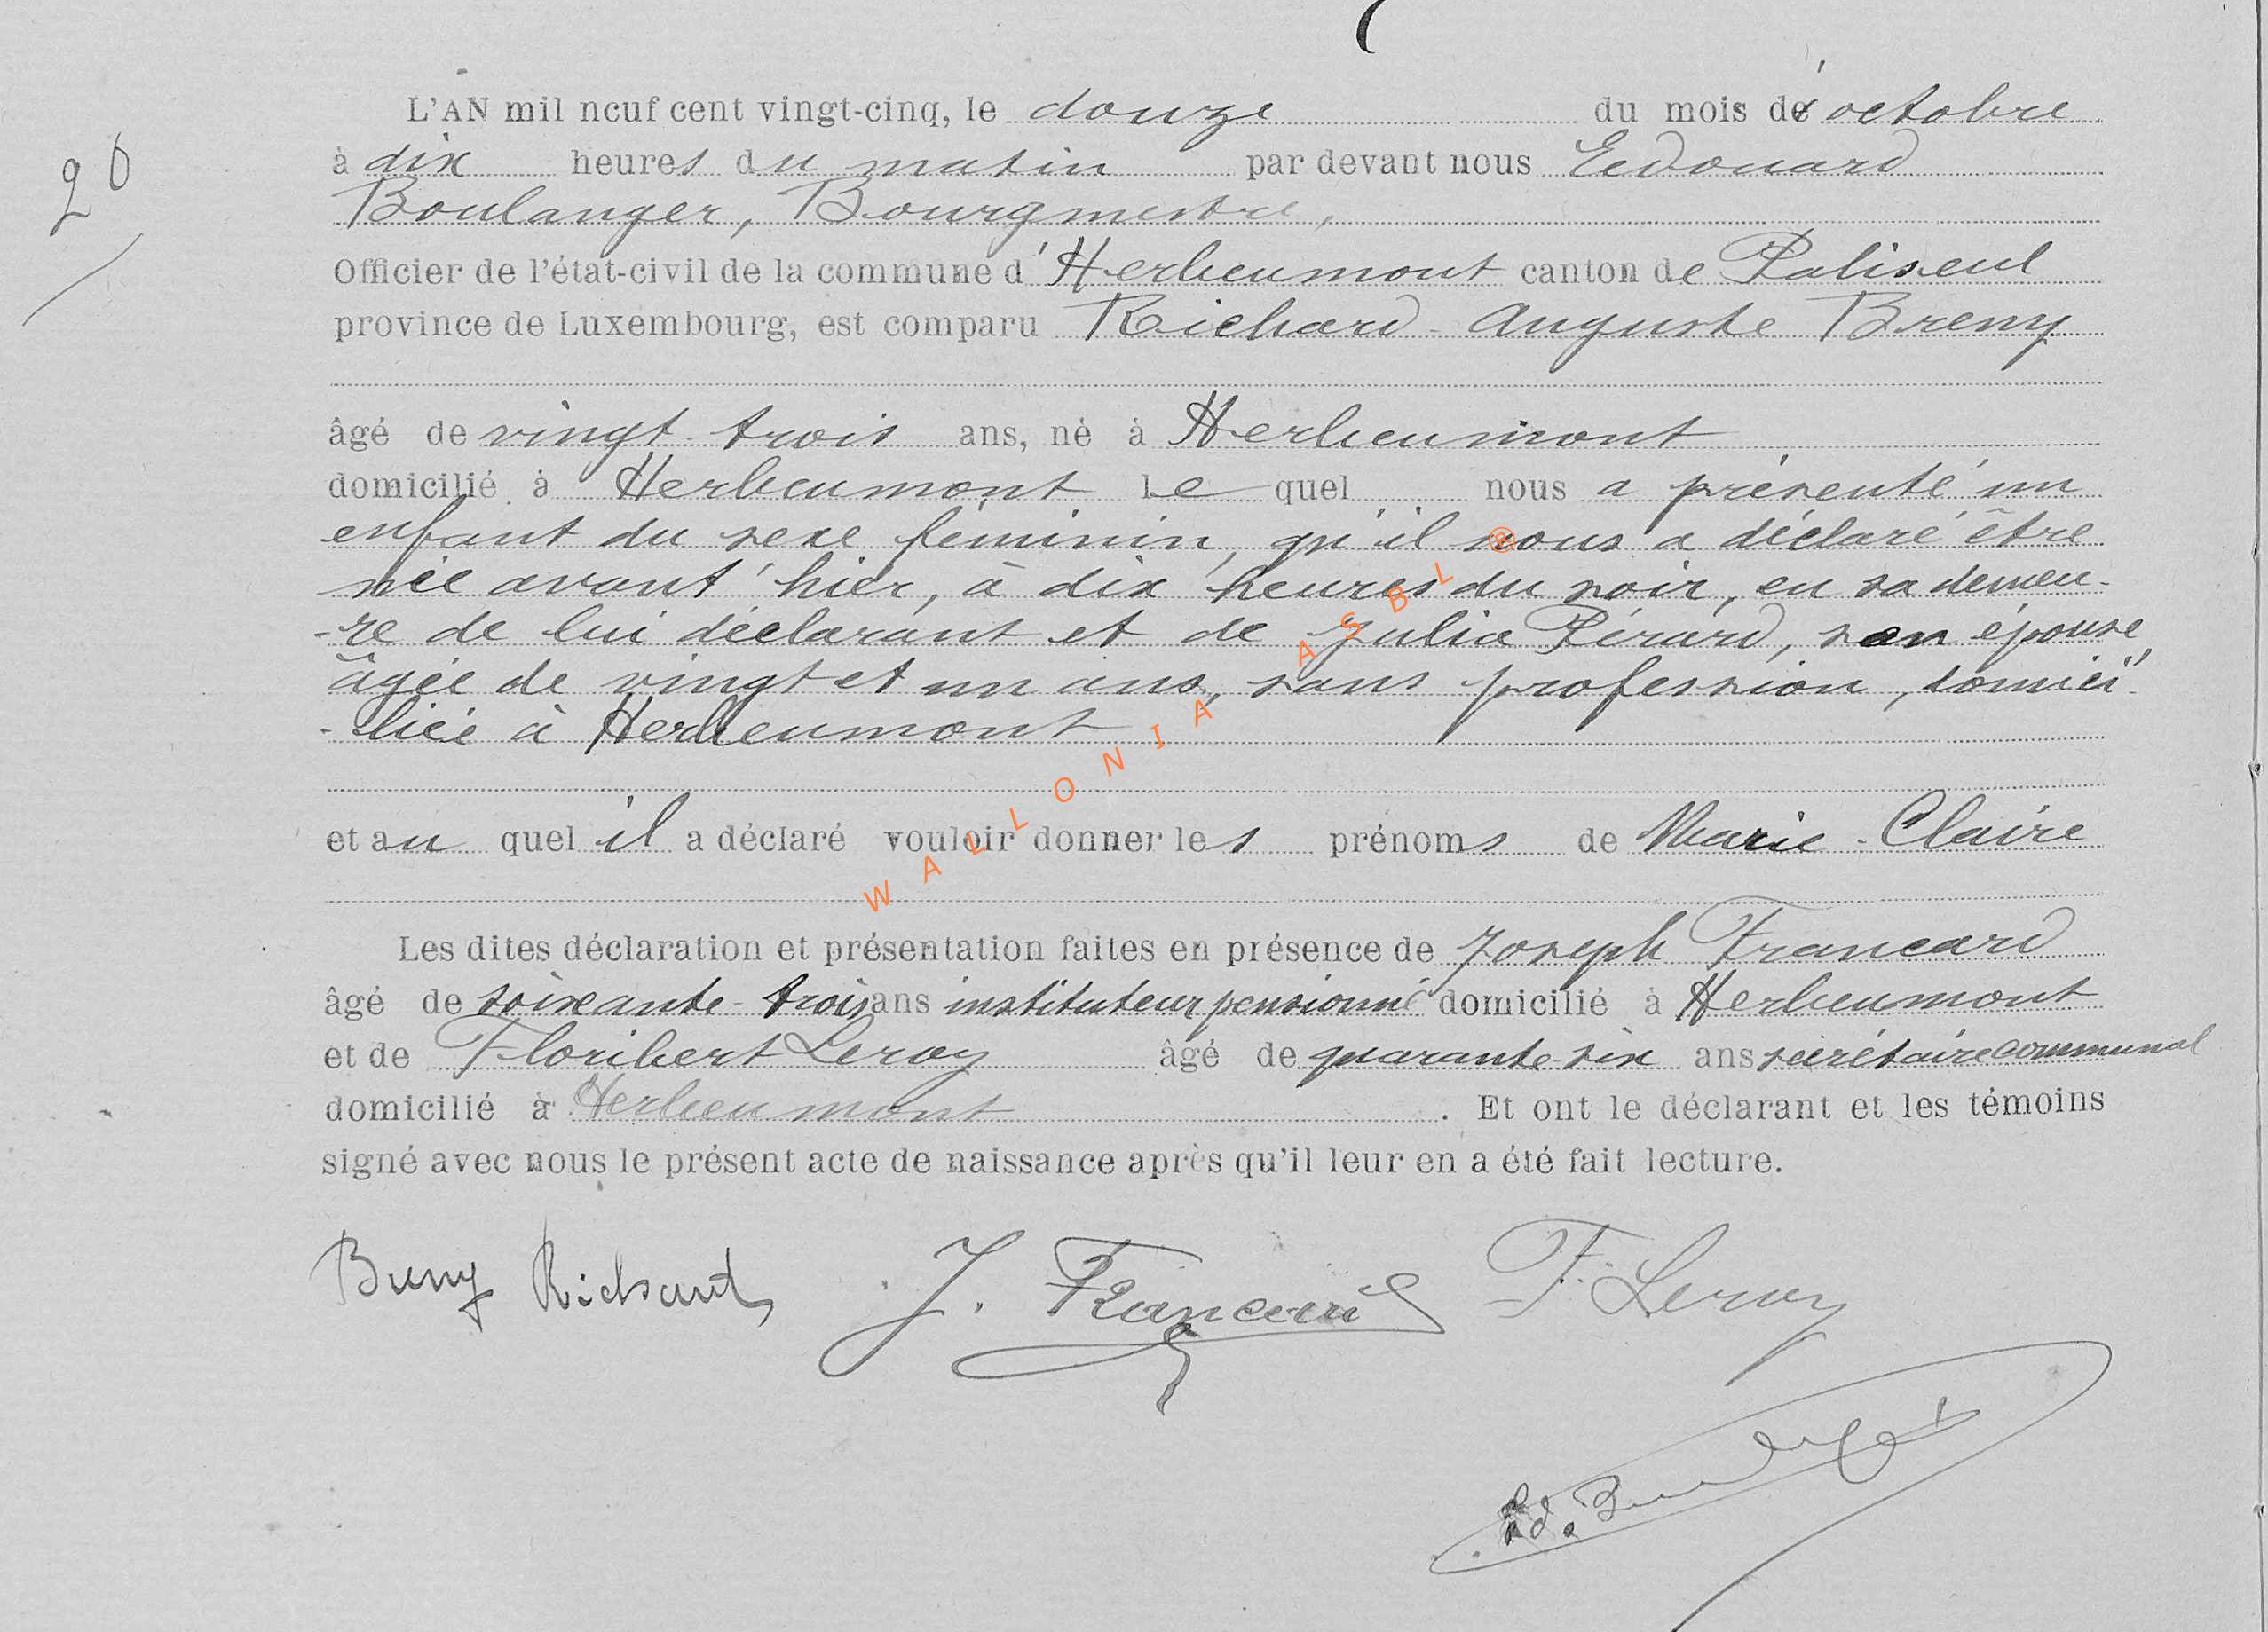 L'AN mil neuf cent vingt-cinq, le douze du mois d'octobre
20
à dix heures du matin par devant nous Edouard
Boulanger, Bourgmestre,
Officier de l'état-civil de la commune d'Herbeumont canton de Paliseul
province de Luxembourg, est comparu Richard-Auguste Breny
âgé de vingt-trois ans, né à Herbeumont
domicilié à Herbeumont Lequel nous a présenté un
enfant du sexe féminin, qu'il nous a déclaré être
née avant'hier, à dix heures du soir, en sa demeu-
-re de lui déclarant et de Julia Pérard, son épouse,
âgée de vingt et un ans, sans profession, domici-
-liée à Herbeumont
et au quel il a déclaré vouloir donner les prénoms de Marie-Claire
Les dites déclaration et présentation faites en présence de Joseph Francard
âgé de soixante-trois ans instituteur pensionné domicilié à Herbeumont
et de Floribert Leroy âgé de quarante-six ans secrétaire communal
domicilié à Herbeumont . Et ont le déclarant et les témoins
signé avec nous le présent acte de naissance après qu'il leur en a été fait lecture.
Breny Richard J. Francard F. Leroy
Ed. Boulanger
WALLONIA ASBL ®